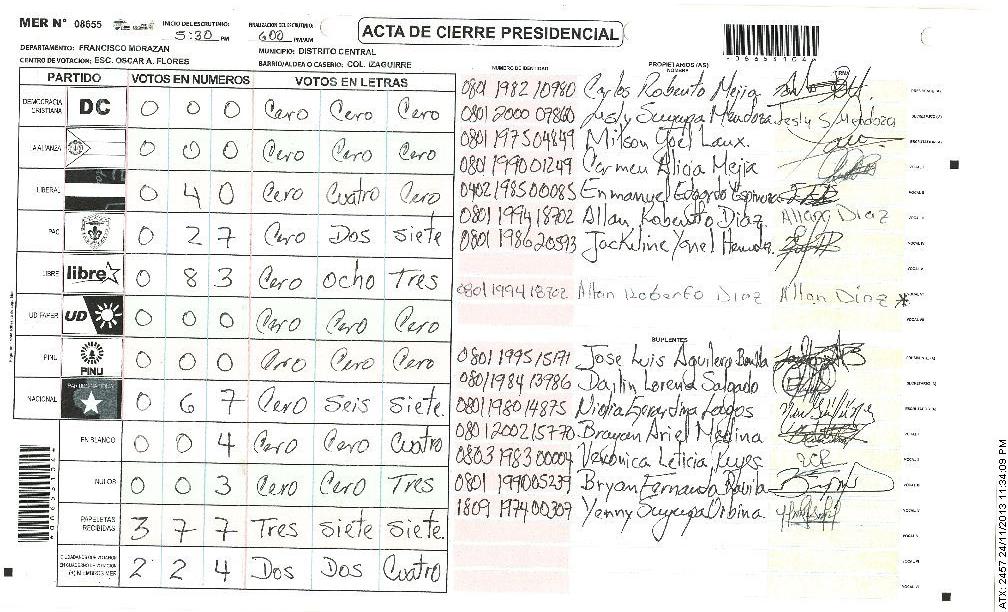 MER N° 08655
INICIO DEL ESCRUTINIO: 5:30 PM
FINALIZACION DEL ESCRUTINIO: 600 PM/AM
ACTA DE CIERRE PRESIDENCIAL
DEPARTAMENTO: FRANCISCO MORAZAN
MUNICIPIO: DISTRITO CENTRAL
CENTRO DE VOTACION: ESC. OSCAR A. FLORES
BARRIO/ALDEA O CASERIO: COL. IZAGUIRRE
PARTIDO VOTOS EN NUMEROS VOTOS EN LETRAS
DEMOCRACIA CRISTIANA DC 0 0 0 Cero Cero Cero
ALIANZA 0 0 0 Cero Cero Cero
LIBERAL 0 4 0 Cero Cuatro Cero
PAC 0 2 7 Cero Dos Siete
LIBRE libre 0 8 3 Cero Ocho Tres
UD FAPER UD 0 0 0 Cero Cero Cero
PINU PINU 0 0 0 Cero Cero Cero
NACIONAL 0 6 7 Cero Seis Siete.
EN BLANCO 0 0 4 Cero Cero Cuatro
NULOS 0 0 3 Cero Cero Tres
PAPELETAS RECIBIDAS 3 7 7 Tres Siete Siete.
2 2 4 Dos Dos Cuatro
NUMERO DE IDENTIDAD PROPIETARIOS (AS) NOMBRE FIRMA
0801 1982 10980 Carlos Roberto Mejia
0801 2000 07860 Jesly Suyapa Mendoza Jesly S Mendoza
0801 1975 04849 Milson Joel Laux.
0801 1990 01249 Carmen Alicia Mejia
0402 1985 00085 Enmanuel Edgardo Espinoza
0801 1994 18702 Allan Roberto Diaz Allan Diaz
0801 1986 20593 Jackeline Yanel
0801 1994 18702 Allan Roberto Diaz Allan Diaz *
SUPLENTES
0801 1995 15171 Jose Luis Aguilera Bonilla
0801 1984 13986 Dailin Lorena Salgado
0801 1980 14875 Nidia Ernardina Lagos
0801 2002 15770 Brayan Ariel Medina
0803 1983 00004 Veronica Leticia Reyes
0801 1990 05239 Bryan Fernando
1809 1974 00307 Yenny Suyapa Orbina.
ATX: 2457 24/11/2013 11:34:09 PM